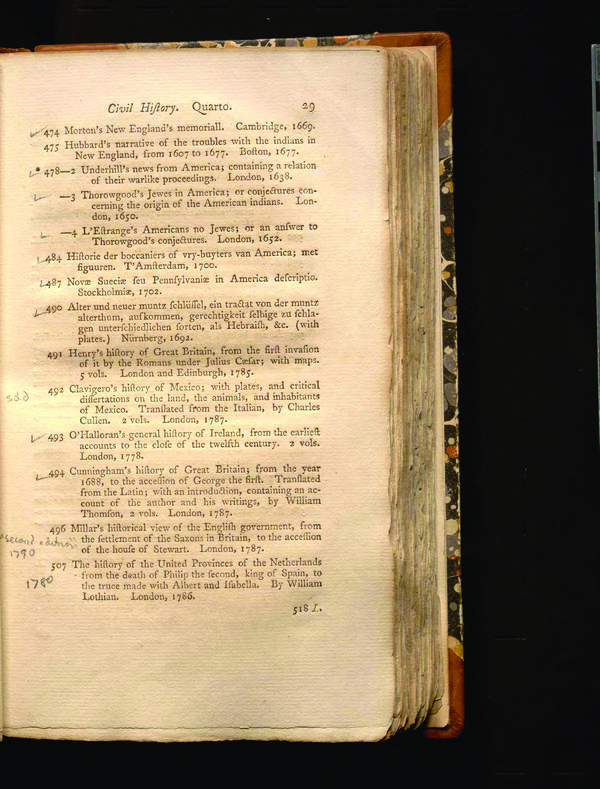 Civil Hiſtory. Quarto. 29
474 Morton's New England's memoriall. Cambridge, 1669.
475 Hubbard's narrative of the troubles with the indians in
New England, from 1607 to 1677. Boſton, 1677.
* 478—2 Underhill's news from America; containing a relation
of their warlike proceedings. London, 1638.
—3 Thorowgood's Jewes in America; or conjectures con-
cerning the origin of the American indians. Lon-
don, 1650.
—4 L'Eſtrange's Americans no Jewes; or an anſwer to
Thorowgood's conjectures. London, 1652.
484 Hiſtorie der boccaniers of vry-buyters van America; met
figuuren. T'Amſterdam, 1700.
487 Novæ Sueciæ ſeu Pennſylvaniæ in America deſcriptio.
Stockholmiæ, 1702.
490 Alter und neuer muntz ſchlüſſel, ein tractat von der muntz
alterthum, aufkommen, gerechtigkeit ſelbige zu ſchla-
gen unterſchiedlichen ſorten, als Hebraiſh, &c. (with
plates.) Nürnberg, 1692.
491 Henry's hiſtory of Great Britain, from the firſt invaſion
of it by the Romans under Julius Cæſar; with maps.
5 vols. London and Edinburgh, 1785.
s.d.d 492 Clavigero's hiſtory of Mexico; with plates, and critical
diſſertations on the land, the animals, and inhabitants
of Mexico. Tranſlated from the Italian, by Charles
Cullen. 2 vols. London, 1787.
493 O'Halloran's general hiſtory of Ireland, from the earlieſt
accounts to the cloſe of the twelfth century. 2 vols.
London, 1778.
494 Cunningham's hiſtory of Great Britain; from the year
1688, to the acceſſion of George the firſt. Tranſlated
from the Latin; with an introduction, containing an ac-
count of the author and his writings, by William
Thomſon, 2 vols. London, 1787.
496 Millar's hiſtorical view of the Engliſh government, from
"second edition" the ſettlement of the Saxons in Britain, to the acceſſion
1790 of the houſe of Stewart. London, 1787.
507 The hiſtory of the United Provinces of the Netherlands
1780 from the death of Philip the ſecond, king of Spain, to
the truce made with Albert and Iſabella. By William
Lothian. London, 1786.
518 L.